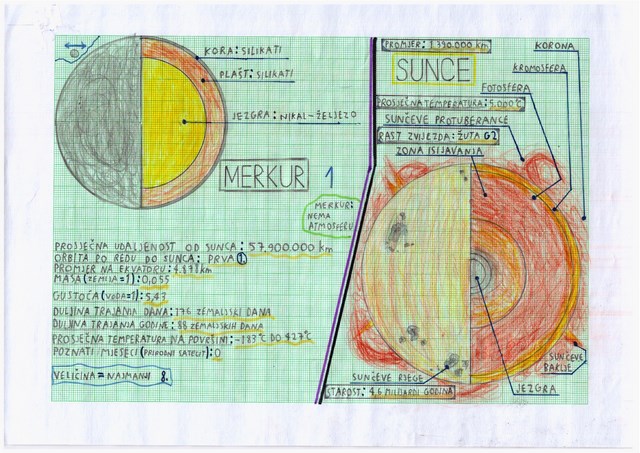 KORA: SILIKATI
PLAŠT: SILIKATI
JEZGRA: NIKAL-ŽELJEZO
MERKUR 1
MERKUR:
NEMA
ATMOSFERU
PROSJEČNA UDALJENOST OD SUNCA: 57,900.000 km
ORBITA PO REDU DO SUNCA: PRVA 1
PROMJER NA EKVATORU: 4.878km
MASA (ZEMLJA=1): 0,055
GUSTOĆA (VODA=1): 5,43
DULJINA TRAJANJA DANA: 176 ZEMALJSKI DANA
DULJINA TRAJANJA GODINE: 88 ZEMALJSKIH DANA
PROSJEČNA TEMPERATURA NA POVRŠINI: -183°C DO 427°C
POZNATI MJESECI (PRIRODNI SATELIT): 0
VELIČINA = NAJMANJI 8.
PROMJER: 1.390.000 km
SUNCE
KORONA
KROMOSFERA
FOTOSFERA
PROSJEČNA TEMPERATURA: 5.000°C
SUNČEVE PROTUBERANCE
RAST ZVIJEZDA: ŽUTA G2
ZONA ISIJAVANJA
SUNČEVE
BAKLJE
SUNČEVE PJEGE
JEZGRA
STAROST: 4,6 MILIJARDI GODINA